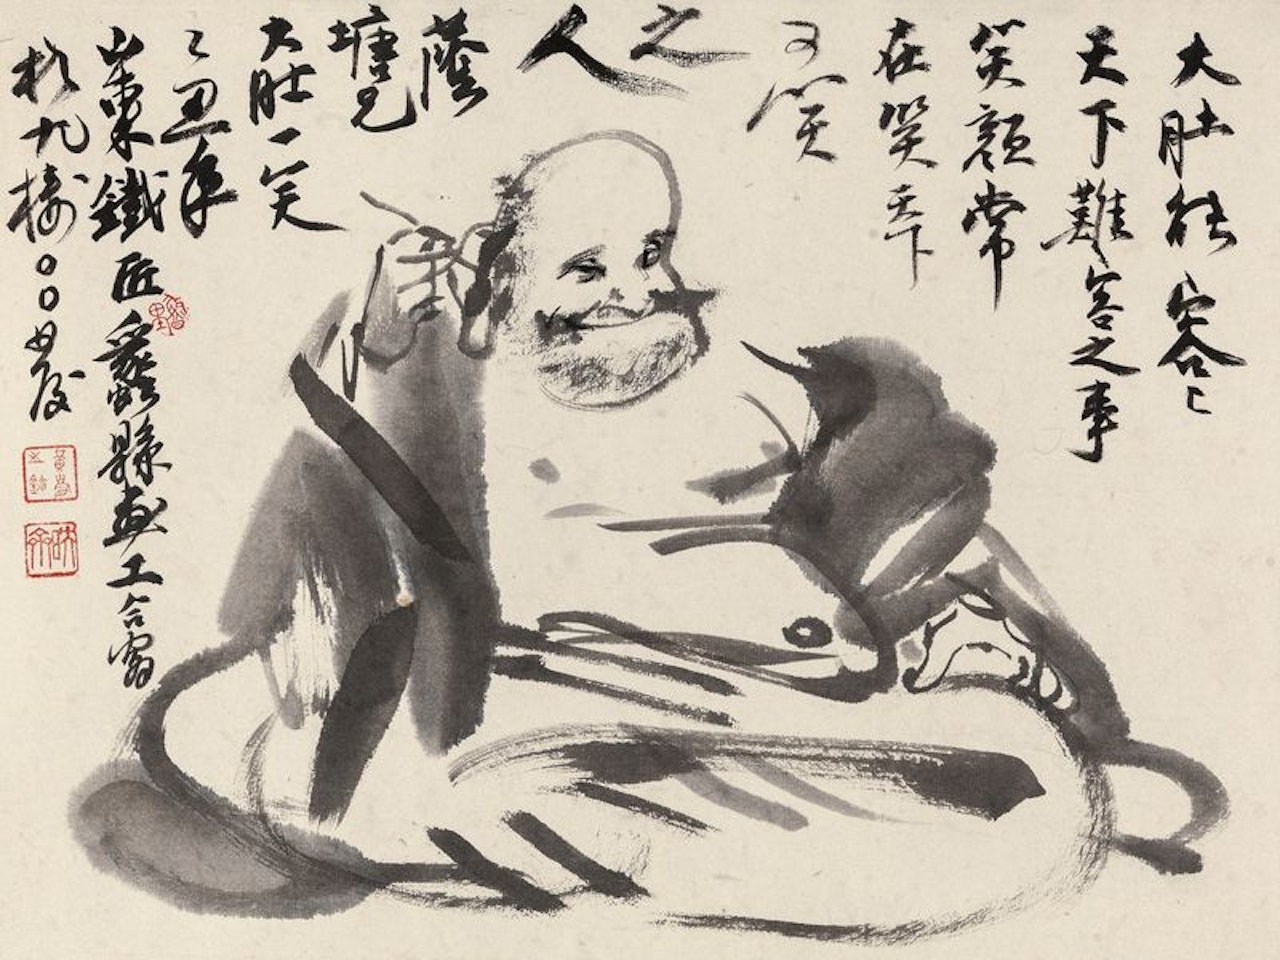 大肚能容〻
天下難容之事
笑顏常
在笑天下
可笑
之
人
蔭
塘兄
大肚一笑
乙丑年
山東鐵匠蠡縣画工合寫
於九樓〇〇